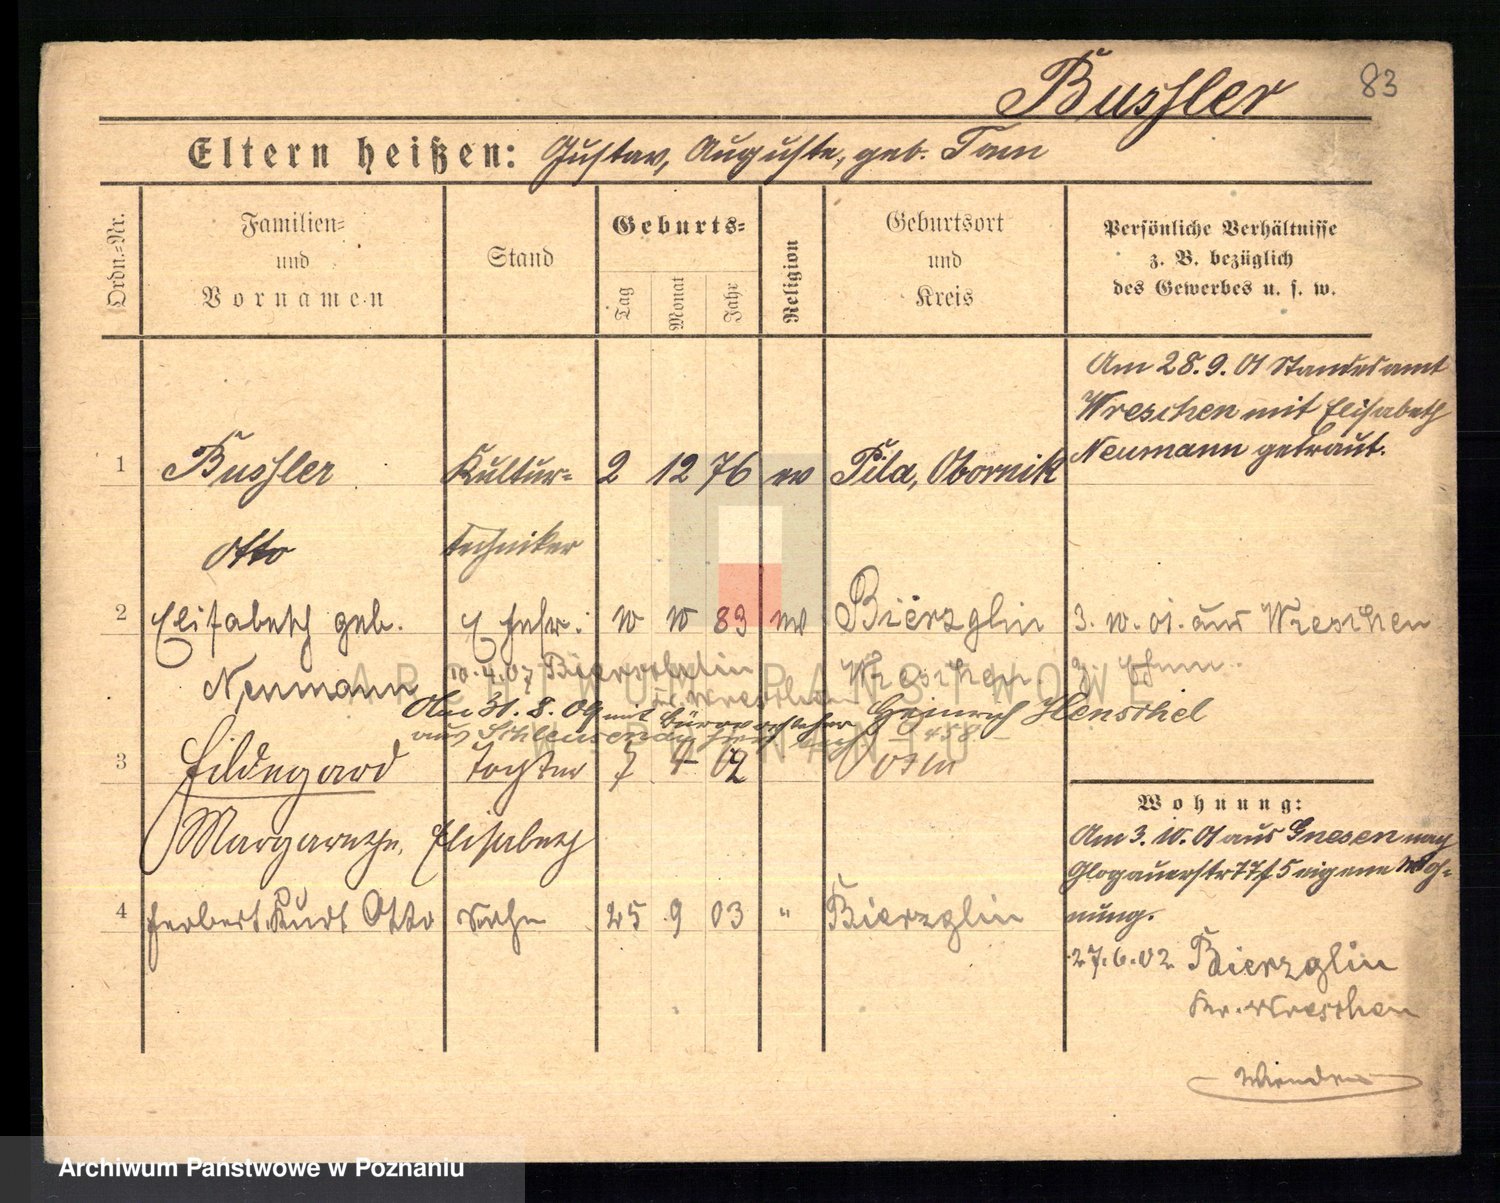 Bussler 83
Eltern heißen: Gustav, Auguste, geb. Tom
Ordn.-Nr.
Familien-
und
Vornamen
Stand
Geburts-
Tag
Monat
Jahr
Religion
Geburtsort
und
Kreis
Persönliche Verhältnisse
z. B. bezüglich
des Gewerbes u. s. w.
Am 28.9.01 Standesamt
Wreschen mit Elisabeth
Neumann getraut.
1 Bussler Kultur- 2 12 76 ev Pila, Obornik
Otto techniker
2 Elisabeth geb. Ehefr. 10 10 83 ev Bierzglin 3. 10. 01. aus Wreschen
Neumann 10.4.07 Wreschen z. Ehem.
Am 31. 8. 09 mit Heinrich Henschel
aus
3 Hildegard Tochter 7 7 02 Posen
Margarethe, Elisabeth
4 Herbert Kurt Otto Sohn 25 9 03 " Bierzglin
Wohnung:
Am 3. 10. 01 aus Gnesen nach
Glogauerstr 77 f 5 eigene Woh-
nung.
27.6.02 Bierzglin
Kr. Wreschen
ARCHIWUM PAŃSTWOWE
W POZNANIU
Archiwum Państwowe w Poznaniu